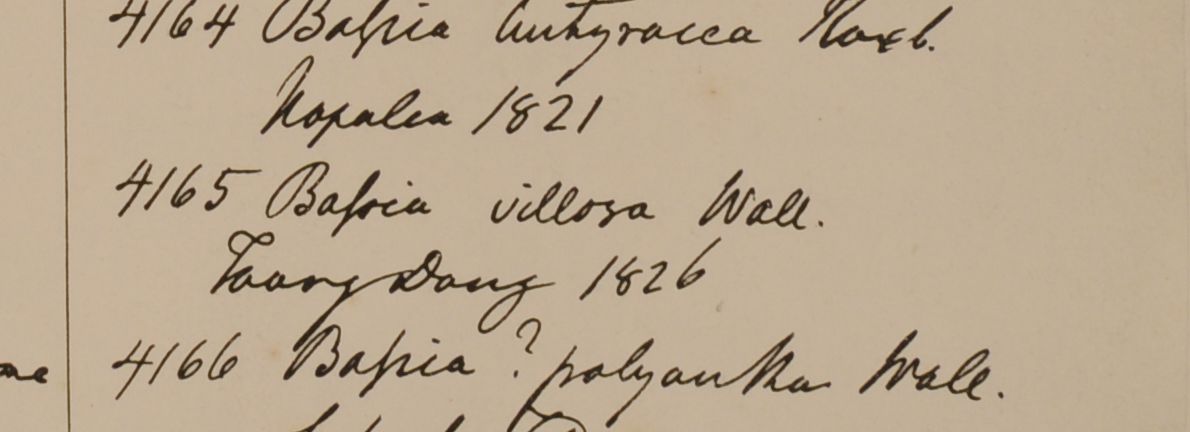 4164 Baſsia butyracea Roxb.
Napalia 1821
4165 Baſsia villosa Wall.
Taong Dong 1826
4166 Baſsia ? polyantha Wall.